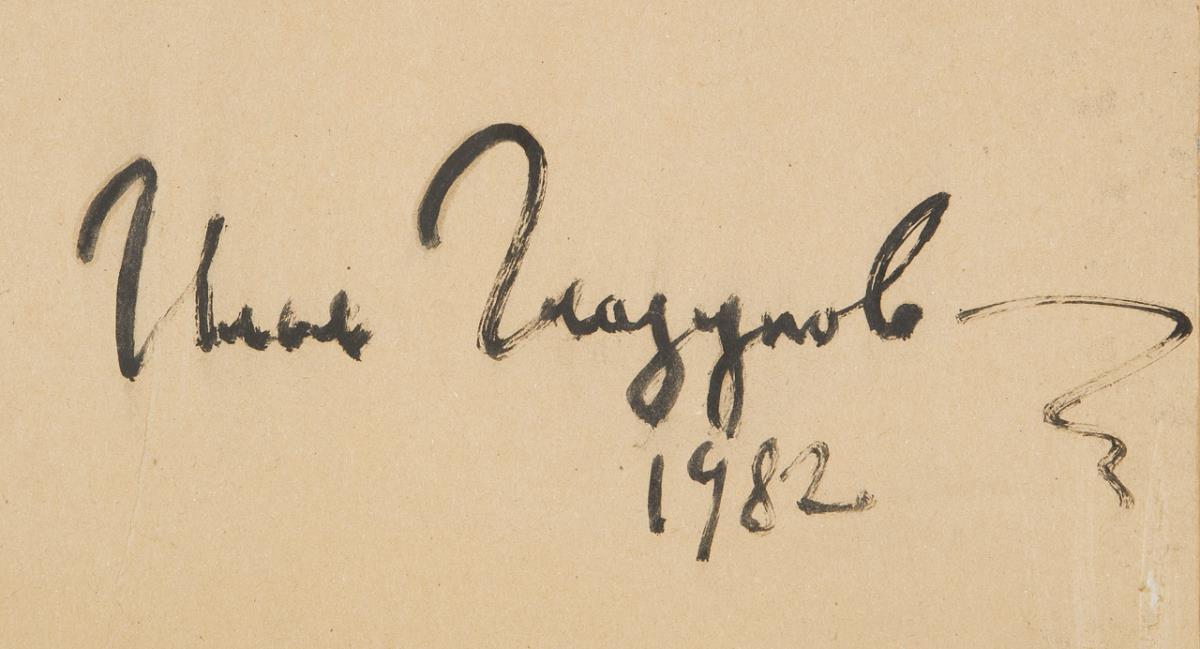 Илья Глазунов
1982